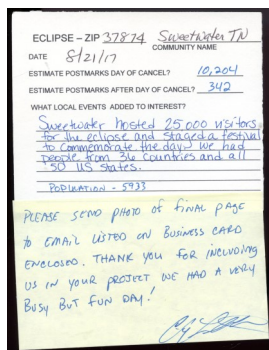 ECLIPSE – ZIP 37874 Sweetwater TN
COMMUNITY NAME
DATE 8/21/17
ESTIMATE POSTMARKS DAY OF CANCEL? 10,204
ESTIMATE POSTMARKS AFTER DAY OF CANCEL? 342
WHAT LOCAL EVENTS ADDED TO INTEREST?
Sweetwater hosted 25000 visitors
for the eclipse and staged a festival
to commemorate the day. We had
people from 36 countries and all
50 US states.
POPULATION - 5933
PLEASE SEND PHOTO OF FINAL PAGE
TO EMAIL LISTED ON BUSINESS CARD
ENCLOSED. THANK YOU FOR INCLUDING
US IN YOUR PROJECT WE HAD A VERY
BUSY BUT FUN DAY!